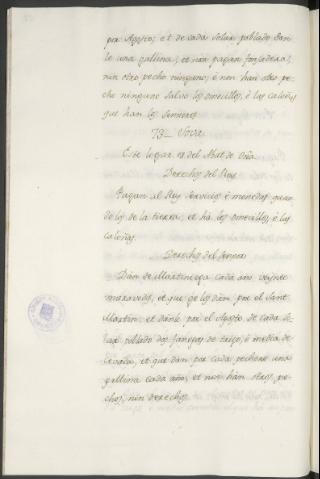 por Agosto; et de cada solar poblado dan
le una gallina; et non pagan fonsadera,
nin otro pecho ninguno; é non han otro pe-
cho ninguno salvo los omecillos, é las caloñas
que han los Señores.
73 = Sova
Este logar es del Abat de Oña
Derechos del Rey
Pagan al Rey servicios é monedas quan-
do los de la tierra; et há los omecillos, é las
caloñas.
Derechos del Señor
Dan de Martiniega cada año veynte
maravedis, et que ge los dan por el Sant
Martin, et danle por el Agosto de cada so-
lar poblado dos fanegas de trigo, é media de
cevada, et que dan por cada solar una
gallina cada año, et non han otros pe-
chos, nin derechos.